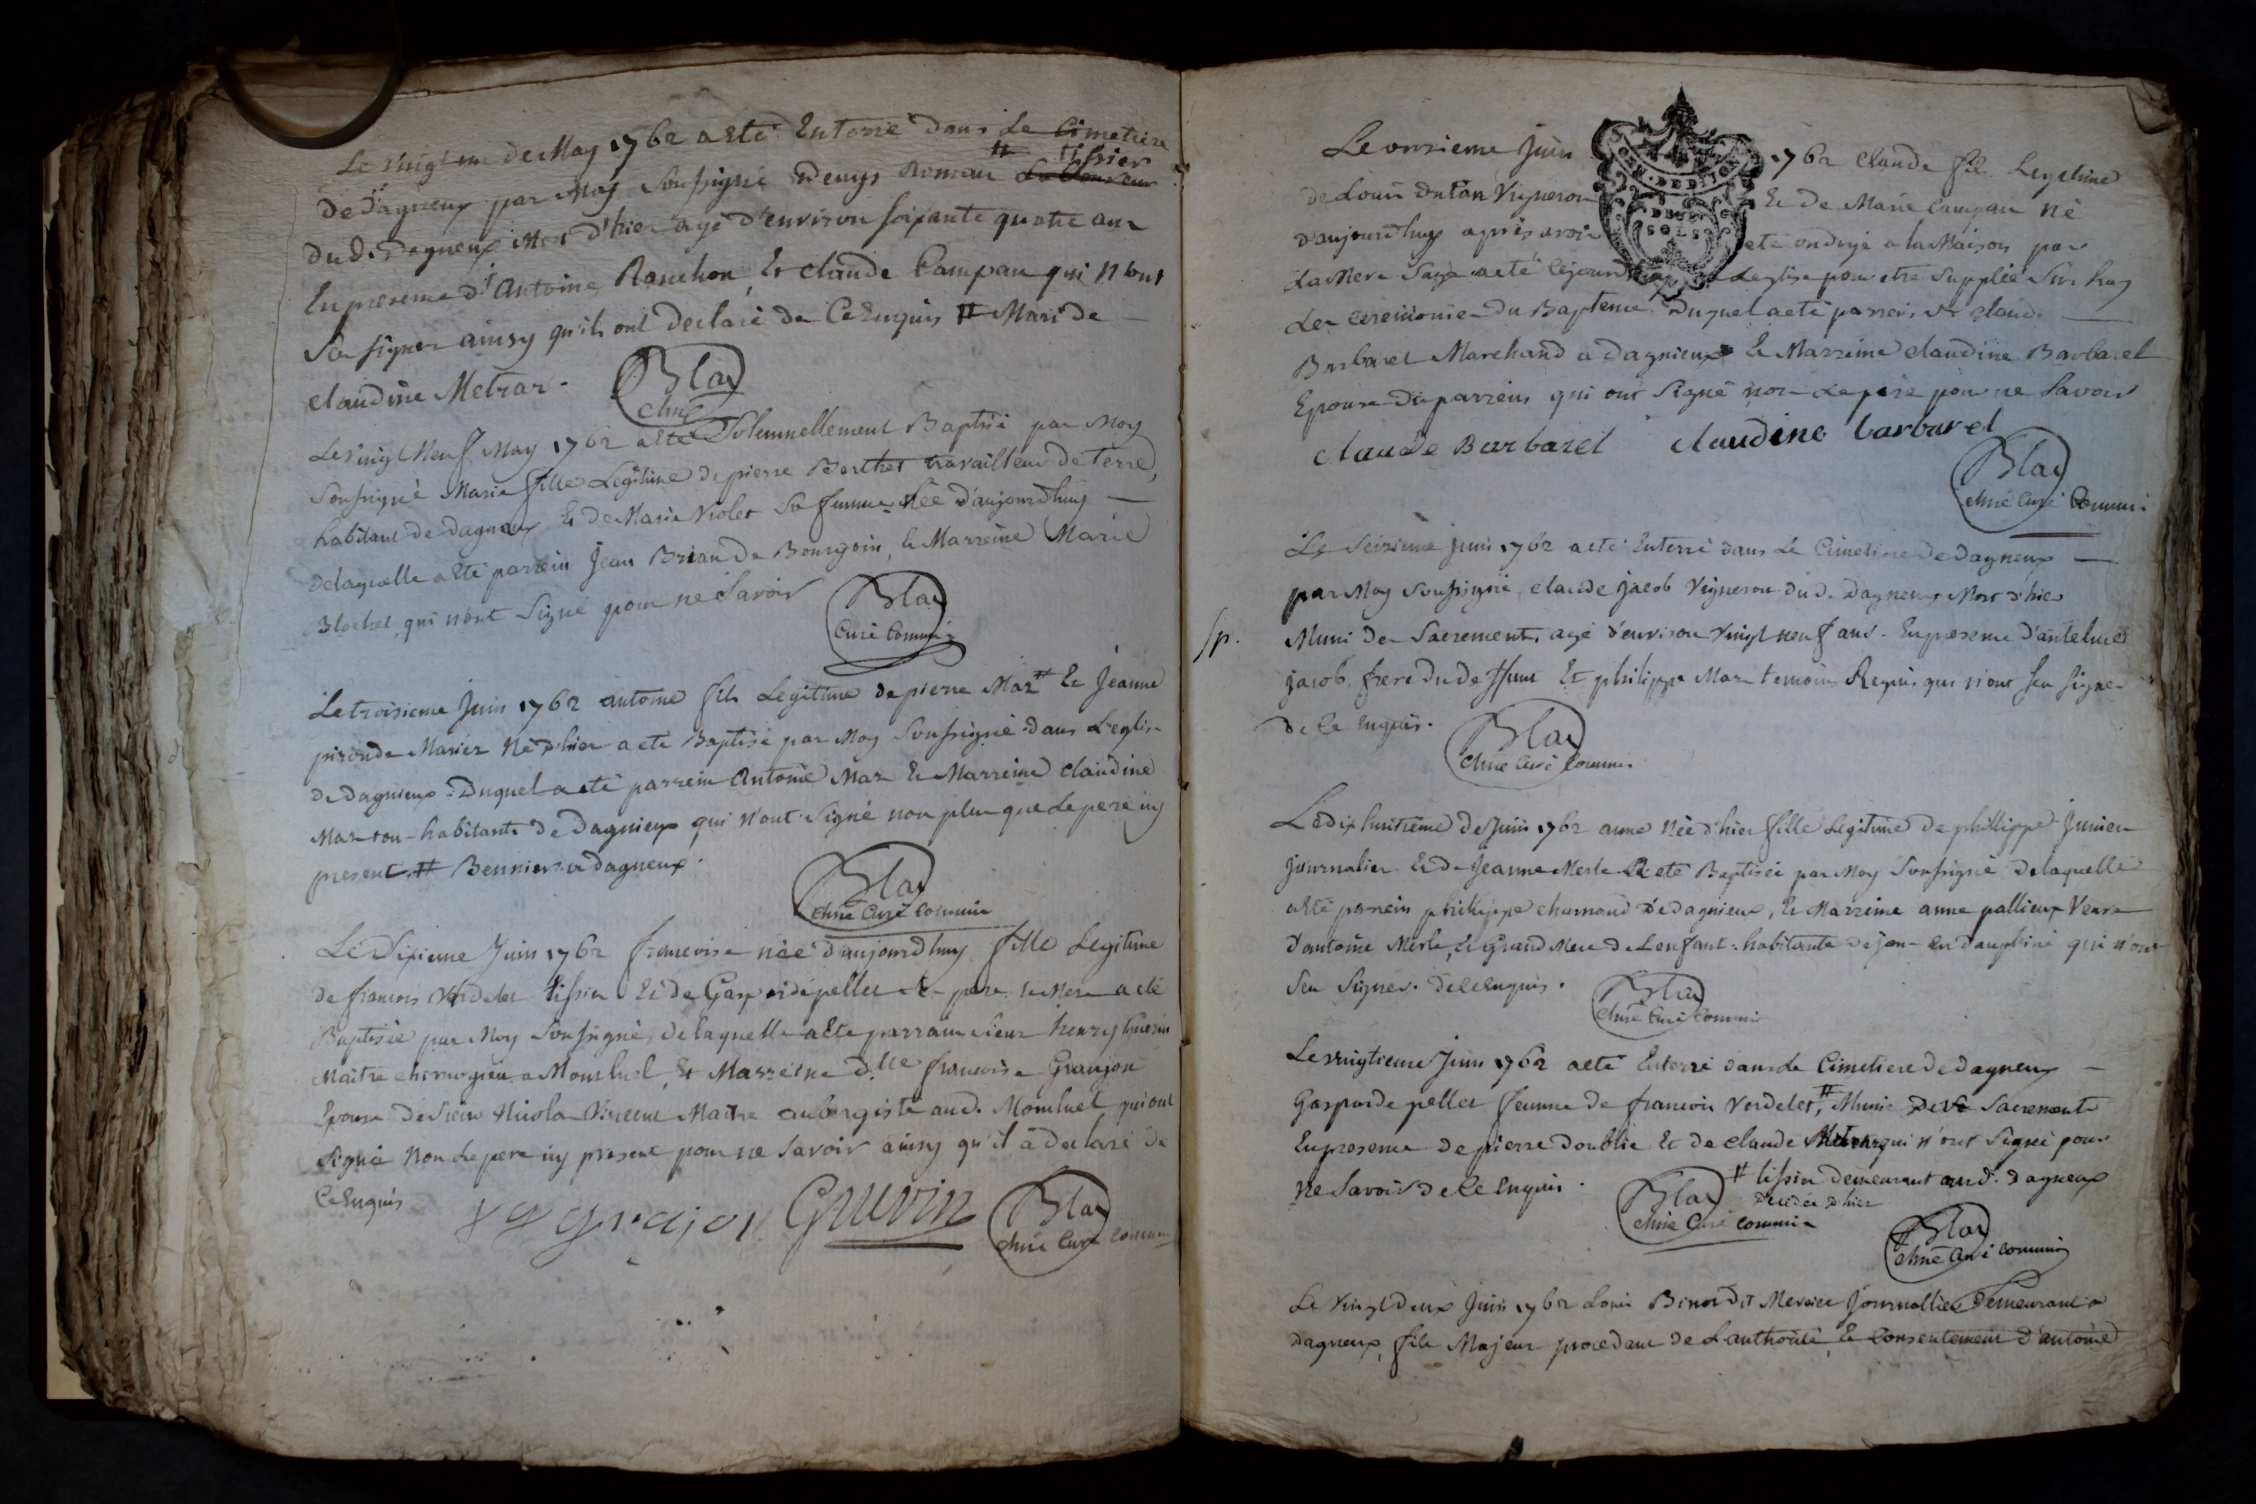 Le vingt un de May 1762 a eté Enterré dans Le Cimetiere
De Dagneux par Moy Soussigné Denys Romau # tissier
du d. Dagneux Mort d'hier agé d'environ soixante quatre ans
En presence d'Antoine Ranchon, Et claude Campan qui n'ont
Sçu signer ainsy qu'ils ont declaré de Ce Enquis # Mari de
claudine Metrar.
Blay
Curé
Le vingt Neuf May 1762 a eté Solemnellement Baptisé par Moy
Soussigné Marie fille Legitime de pierre Berthet travailleur de Terre
habitant de Dagneux Et de Marie Violet Sa femme Née d'aujourd'huy
de laquelle a eté parrein Jean Brian de Bourgoin, Et Marreine Marie
Blochet, qui n'ont Signé pour ne Savoir
Blay
Curé Commis
Le troisieme Juin 1762 antoine fils Legitime de pierre Maz # Et Jeanne
Né d'hier a eté Baptisé par Moy Soussigné dans L'eglise
de Dagnieux. Duquel a eté parrein Antoine Maz Et Marreine claudine
Maz tou habitants de Dagnieux qui n'ont Signé non plus que Le pere icy
present. # Bennier a dagneux.
Blay
chne Curé commis
Le Dixieme Juin 1762 francoise née d'aujourd'huy fille Legitime
de francois Verdelet tissier Et de Gasparde pellet Se pere Et Mere a eté
Baptisée par Moy Soussigné, de laquelle a eté parrain sieur henry Guerin
Maitre chirurgien a Montluel, Et Marreine d.lle francoise Granjon
Epouse De Sieur Nicolas Vincent Maitre aubergiste aud. Montluel qui ont
Signé Non Le pere icy present pour ne Savoir ainsy qu'il a declaré de
Ce Enquis
grajon Guerin Blay
chne Curé commis
Le onzieme Juin 1762 Claude fils Legitime
de Louis Dutan Vigneron Et de Marie Campan Né
d'aujourd'huy après avoir eté ondoyé a la Maison par
La Mere Sage a eté Lejourd'huy Leglise pour etre Supplée Sur luy
Les ceremonies du Bapteme. Duquel a eté parrein Sr claude
Barbaret Marchand a Dagnieux Et Marreine claudine Barbaret
Epouse du parrein qui ont Signé non Le pere pour ne Savoir
claude Barbaret claudine barbaret
Blay
chne Curé Commis
Le Seizieme Juin 1762 a eté Enterré dans Le Cimetiere de Dagneux
par Moy Soussigné, claude Jacob Vigneron du d. Dagneux Mort d'hier
Muni des Sacrements, agé d'environ Vingt neuf ans. En presence d'antelme
jacob frere du deffunt Et philippe Maz temoins Requis qui n'ont sçu signer
de Ce Enquis.
Blay
chne Curé Commis
Le dix huitieme de Juin 1762 anne Née d'hier fille Legitime de philippe Junier
Journalier Et de Jeanne Merle a eté Baptisée par Moy Soussigné De laquelle
a eté parrein philippe charnaud de Dagnieux, Et Marreine anne pallieux Veuve
d'antoine Merle, Et grand Mere de L'enfant habitante de jon en dauphiné qui n'ont
Sçu Signer. De Ce Enquis.
Blay
chne Curé Commis
Le vingtieme Juin 1762 a eté Enterré dans Le Cimetiere de Dagneux
Gasparde pellet femme de francois Verdelet, # Munie de Se Sacrements
En presence de pierre Doublie Et de claude qui n'ont Signé pour
ne Savoir de Ce Enquis.
# tissier demeurant aud. dagneux
Decedée d'hier
Blay
chne Curé commis
Blay
chne Curé commis
Le vingt deux Juin 1762 Louis Binot Dit Mercier Journallier Demeurant a
Dagneux, fils Majeur procedant de L'authorité, Et Consentement d'antoine